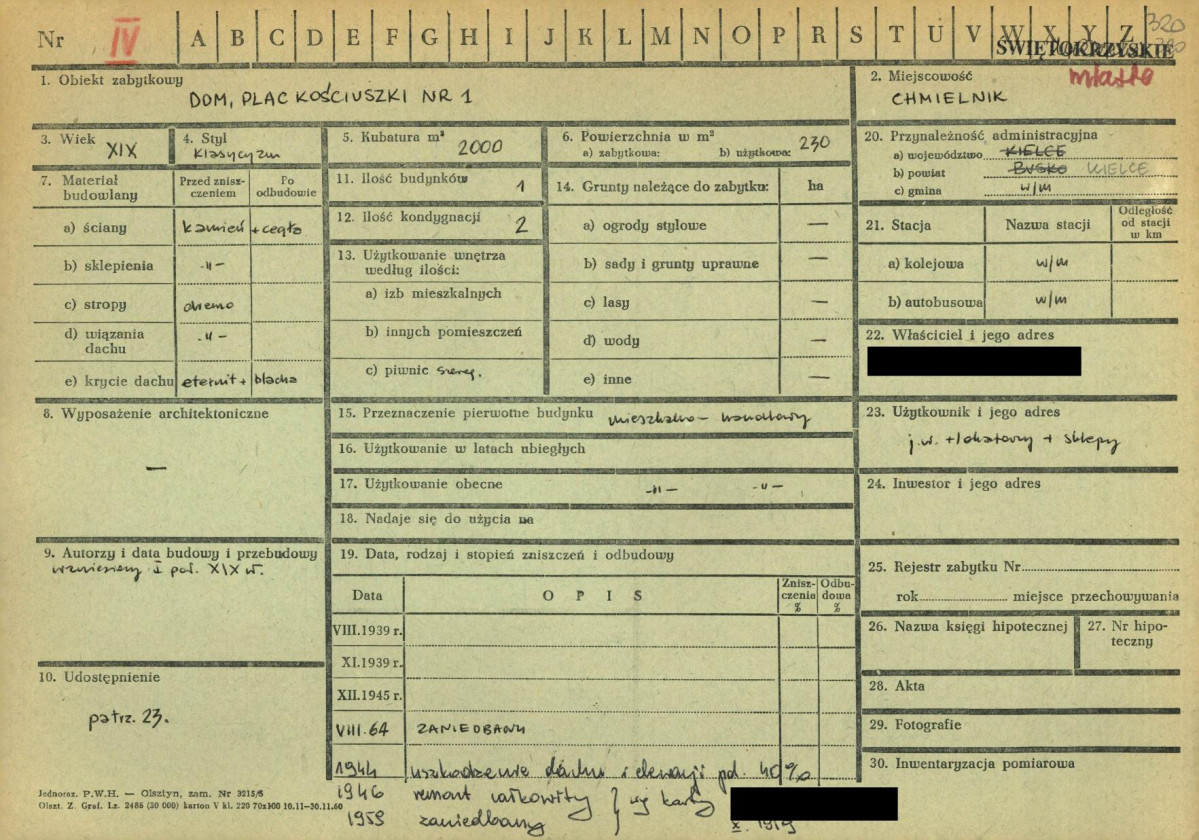 Nr IV A B C D E F G H I J K L M N O P R S T U V W X Y Z 320
ŚWIĘTOKRZYSKIE
1. Obiekt zabytkowy
DOM, PLAC KOŚCIUSZKI NR 1
2. Miejscowość miasto
CHMIELNIK
3. Wiek XIX
4. Styl
Klasycyzm
5. Kubatura m³ 2000
6. Powierzchnia w m²
a) zabytkowa: b) użytkowa: 230
20. Przynależność administracyjna
a) województwo KIELCE
b) powiat BUSKO KIELCE
c) gmina w/m
7. Materiał budowlany
Przed zniszczeniem
Po odbudowie
a) ściany kamień + cegła
b) sklepienia -"-
c) stropy drewno
d) wiązania dachu -"-
e) krycie dachu eternit + blacha
11. Ilość budynków 1
12. Ilość kondygnacji 2
13. Użytkowanie wnętrza
według ilości:
a) izb mieszkalnych
b) innych pomieszczeń
c) piwnic szereg.
14. Grunty należące do zabytku: ha
a) ogrody stylowe —
b) sady i grunty uprawne —
c) lasy —
d) wody —
e) inne —
21. Stacja Nazwa stacji Odległość od stacji w km
a) kolejowa w/m
b) autobusowa w/m
22. Właściciel i jego adres
8. Wyposażenie architektoniczne
—
15. Przeznaczenie pierwotne budynku mieszkalno - handlowy
16. Użytkowanie w latach ubiegłych
17. Użytkowanie obecne -"- -"-
18. Nadaje się do użycia na
23. Użytkownik i jego adres
j.w. + lokatorzy + sklepy
24. Inwestor i jego adres
9. Autorzy i data budowy i przebudowy
wzniesiony I poł. XIX w.
19. Data, rodzaj i stopień zniszczeń i odbudowy
Data OPIS Zniszczenia % Odbudowa %
VIII.1939 r.
XI.1939 r.
XII.1945 r.
VIII.64 ZANIEDBANY
1944 uszkodzenie dachu i elewacji pd. 40%
1946 remont całkowity } wg karty
1959 zaniedbany X. 1959
25. Rejestr zabytku Nr
rok miejsce przechowywania
26. Nazwa księgi hipotecznej
27. Nr hipoteczny
28. Akta
29. Fotografie
30. Inwentaryzacja pomiarowa
10. Udostępnienie
patrz. 23.
Jednoraz. P.W.H. — Olsztyn, zam. Nr 3215/S
Olszt. Z. Graf. Lz. 2486 (30 000) karton V kl. 220 70x100 10.11-30.11.60